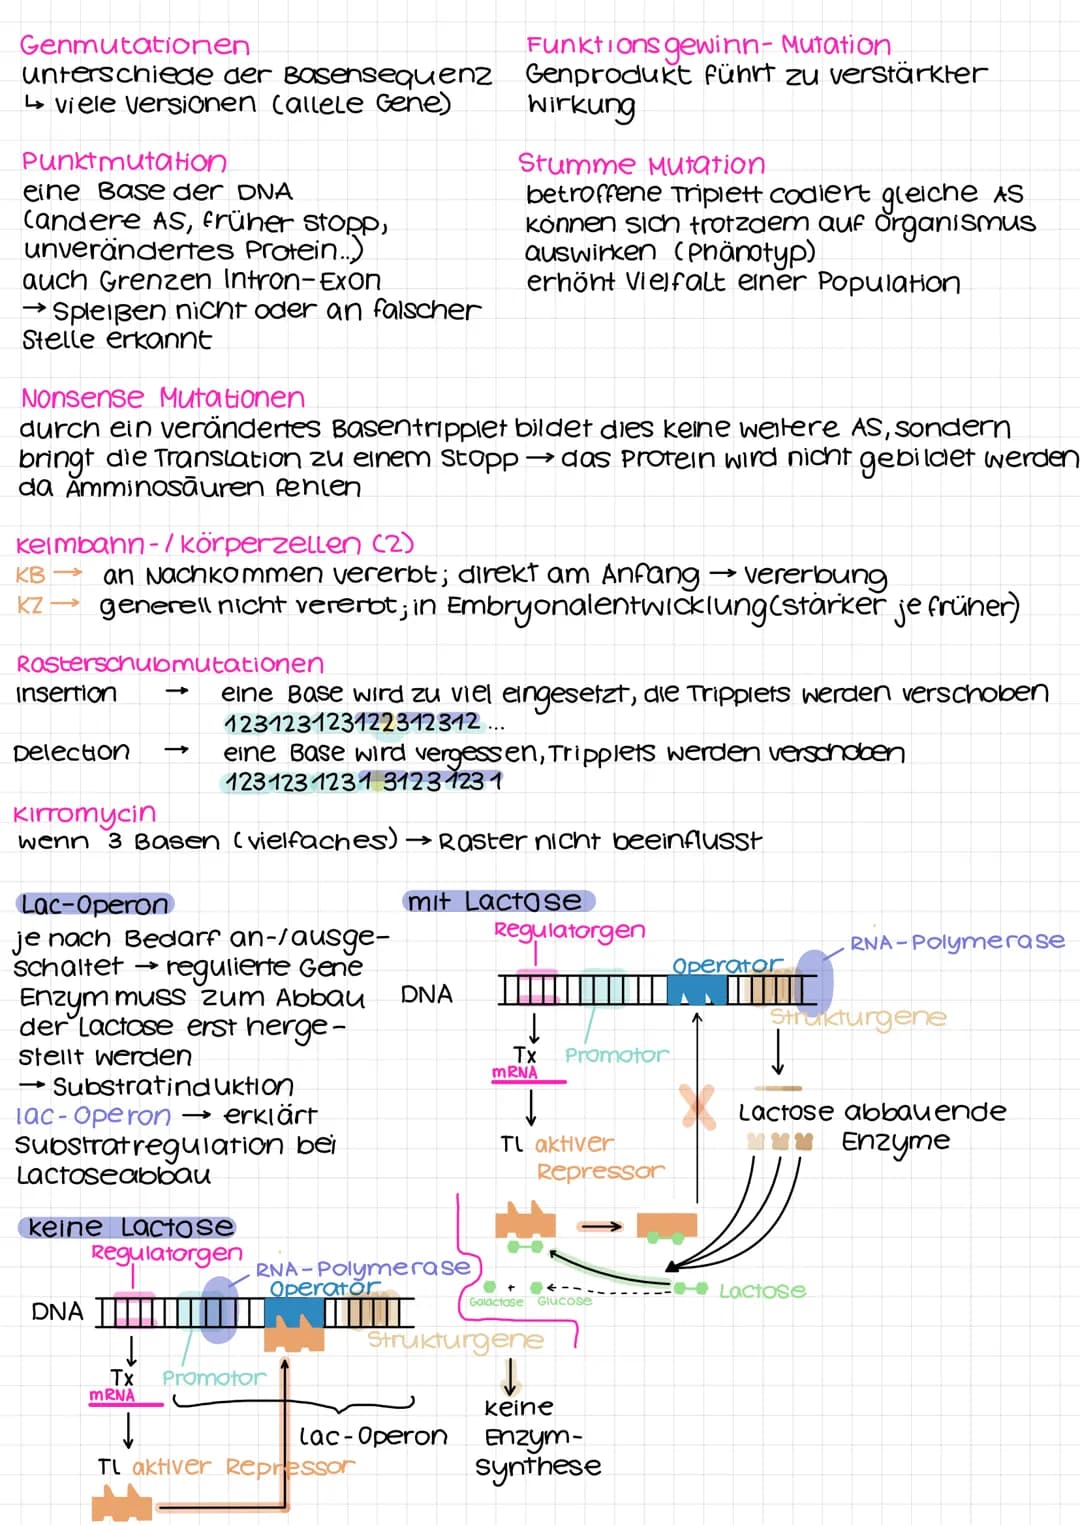 Genmutationen
unterschiede der Basensequenz
↳ viele Versionen (allele Gene)
Funktionsgewinn-Mutation
Genprodukt führt zu verstärkter
Wirkung
Punktmutation
eine Base der DNA
(andere AS, früher stopp,
unverändertes Protein..)
auch Grenzen Intron-Exon
→ Spleißen nicht oder an falscher
Stelle erkannt
Stumme Mutation
betroffene Triplett codiert gleiche AS
können sich trotzdem auf Organismus
auswirken (Phänotyp)
erhöht Vielfalt einer Population
Nonsense Mutationen
durch ein verändertes Basentripplet bildet dies keine weitere AS, sondern
bringt die Translation zu einem Stopp → das Protein wird nicht gebildet werden
da Amminosäuren fehlen
Keimbahn-/körperzellen (2)
KB → an Nachkommen vererbt; direkt am Anfang → Vererbung
KZ → generell nicht vererbt; in Embryonalentwicklung (stärker je früher)
Rasterschubmutationen
Insertion → eine Base wird zu viel eingesetzt, die Tripplets werden verschoben
123123123122312312...
Delection → eine Base wird vergessen, Tripplets werden verschoben
1231231231 31231231
Kirromycin
wenn 3 Basen (vielfaches) → Raster nicht beeinflusst
Lac-Operon
je nach Bedarf an-/ausge-
schaltet → regulierte Gene
Enzym muss zum Abbau
der Lactose erst herge-
stellt werden
→ Substratinduktion
lac-Operon → erklärt
Substratregulation bei
Lactoseabbau
mit Lactose
Regulatorgen
RNA-Polymerase
Operator
DNA
Strukturgene
Tx
Promotor
mRNA
Lactose abbauende
Enzyme
TL aktiver
Repressor
Lactose
Galactose + Glucose
keine Lactose
Regulatorgen
RNA-Polymerase
Operator
DNA
Strukturgene
Tx
Promotor
mRNA
Lac-Operon
TL aktiver Repressor
keine
Enzym-
synthese